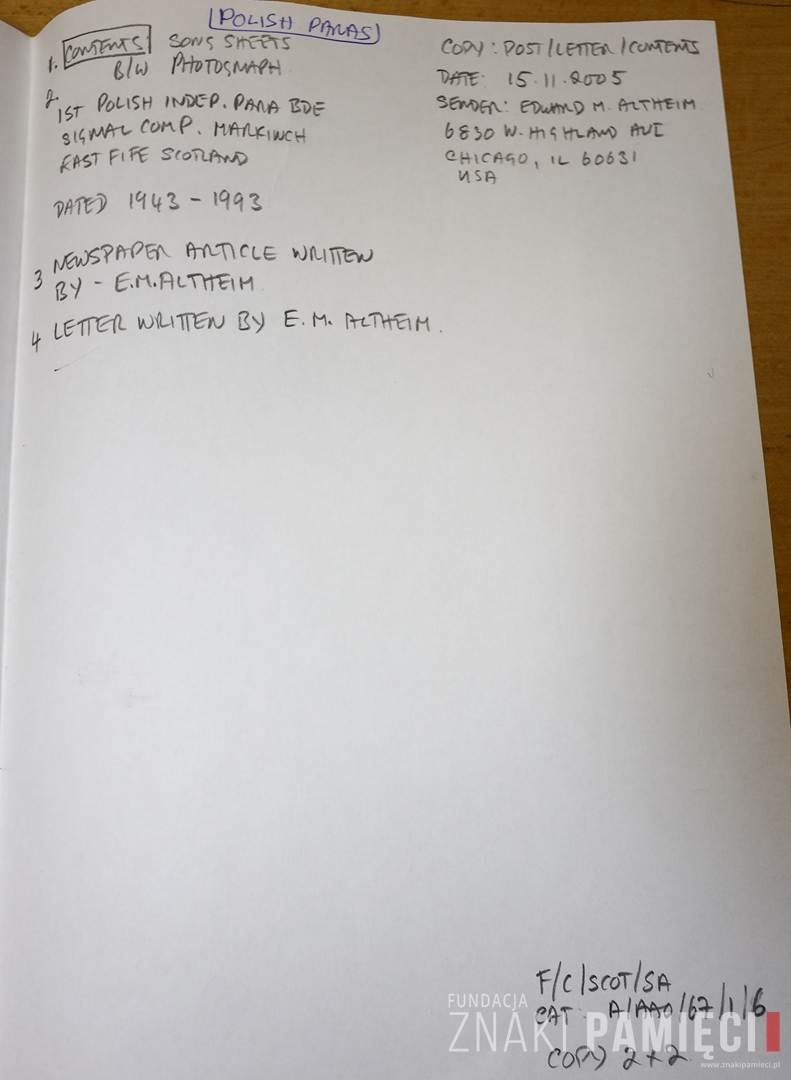 POLISH PARAS
1. CONTENTS SONG SHEETS
B/W PHOTOGRAPH
2. 1ST POLISH INDEP. PARA BDE
SIGNAL COMP. MARKINCH
EAST FIFE SCOTLAND
DATED 1943 - 1993
3 NEWSPAPER ARTICLE WRITTEN
BY - E.M. ALTHEIM
4 LETTER WRITTEN BY E. M. ALTHEIM.
COPY: POST/LETTER/CONTENTS
DATE: 15.11.2005
SENDER: EDWARD M. ALTHEIM
6830 W. HIGHLAND AVE
CHICAGO, IL 60631
USA
F/C/SCOT/SA
CAT: A/AAO/67/1/6
COPY 2+2
FUNDACJA
ZNAKI PAMIĘCI
www.znakipamieci.pl